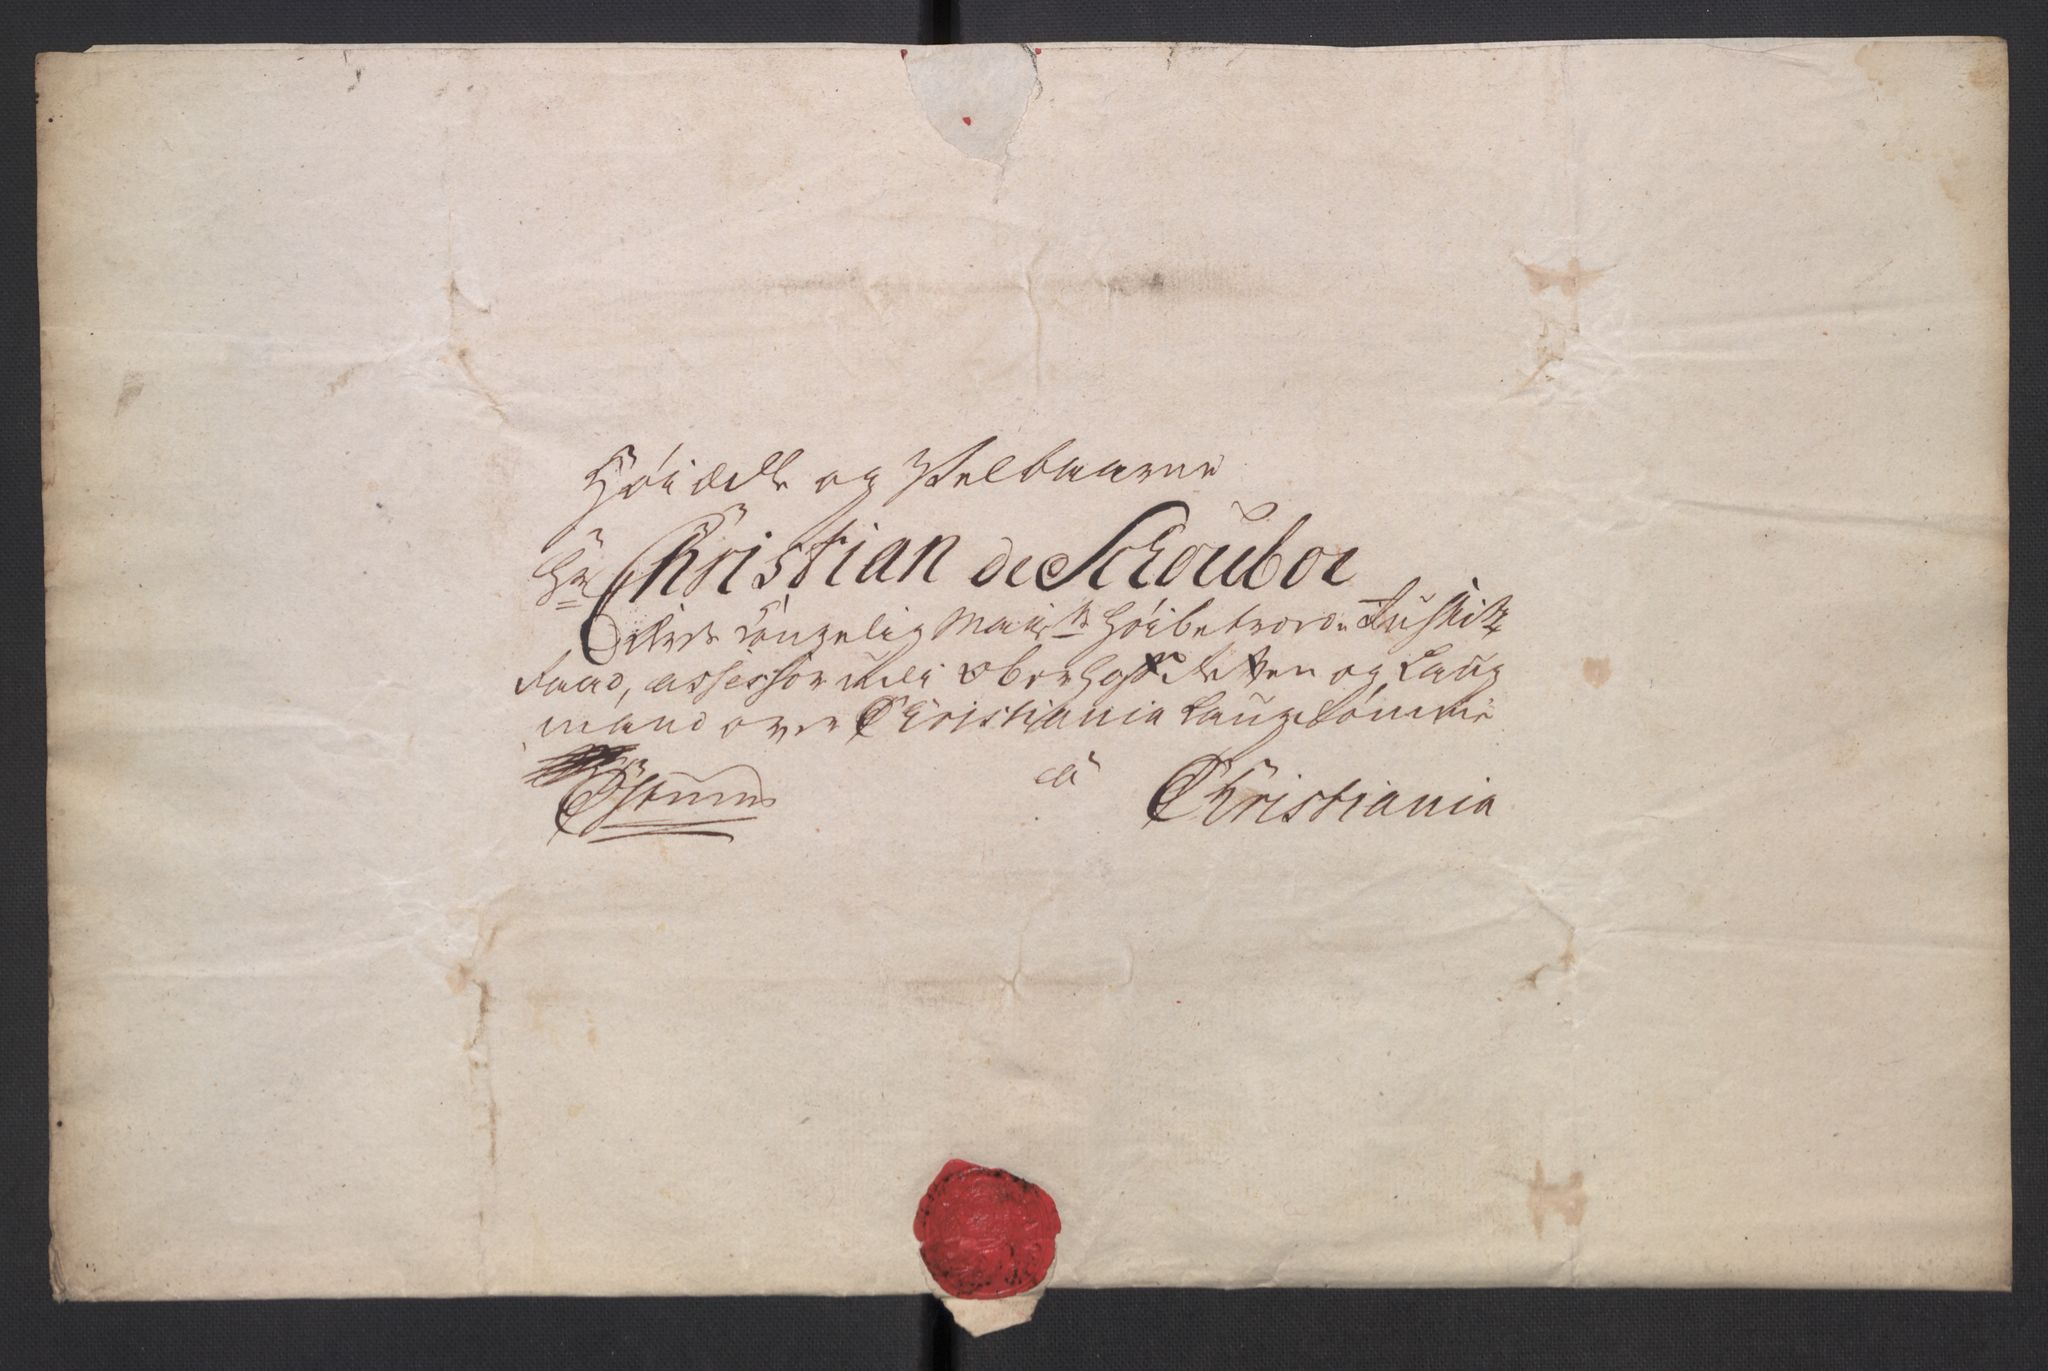 Høiædle og Velbaarne
Hr Christian de Schouboe
Deres Kongelig Maits Høibetroede Justitz
Raad, assessor udi Oberhoff Retten og Laug
mand over Christiania Laugdømme
à Christiania